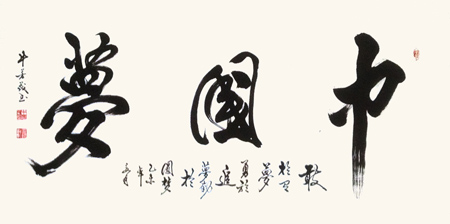 中國夢
敢
於有
夢
勇於
追
夢勤
於
圓梦
乙未
年